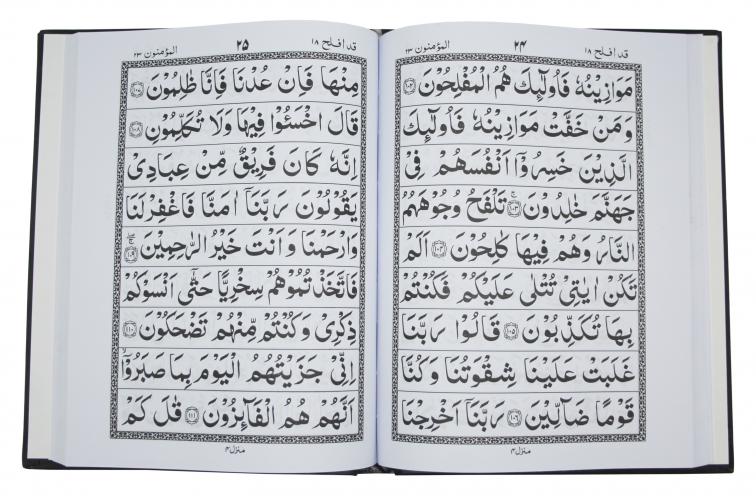 قد افلح ۱۸ ۲۴ المؤمنون ۲۳
مَوَازِينُهٗ فَاُولٰٓئِكَ هُمُ الْمُفْلِحُوْنَ ﴿۱۰۲﴾
وَمَنْ خَفَّتْ مَوَازِيْنُهٗ فَاُولٰٓئِكَ
الَّذِيْنَ خَسِرُوْٓا اَنْفُسَهُمْ فِيْ
جَهَنَّمَ خٰلِدُوْنَ ﴿۱۰۳﴾ تَلْفَحُ وُجُوْهَهُمُ
النَّارُ وَهُمْ فِيْهَا كٰلِحُوْنَ ﴿۱۰۴﴾ اَلَمْ
تَكُنْ اٰيٰتِيْ تُتْلٰى عَلَيْكُمْ فَكُنْتُمْ
بِهَا تُكَذِّبُوْنَ ﴿۱۰۵﴾ قَالُوْا رَبَّنَا
غَلَبَتْ عَلَيْنَا شِقْوَتُنَا وَكُنَّا
قَوْمًا ضَآلِّيْنَ ﴿۱۰۶﴾ رَبَّنَآ اَخْرِجْنَا
منزل ۴
قد افلح ۱۸ ۲۵ المؤمنون ۲۳
مِنْهَا فَاِنْ عُدْنَا فَاِنَّا ظٰلِمُوْنَ ﴿۱۰۷﴾
قَالَ اخْسَـُٔوْا فِيْهَا وَلَا تُكَلِّمُوْنِ ﴿۱۰۸﴾
اِنَّهٗ كَانَ فَرِيْقٌ مِّنْ عِبَادِيْ
يَقُوْلُوْنَ رَبَّنَآ اٰمَنَّا فَاغْفِرْ لَنَا
وَارْحَمْنَا وَاَنْتَ خَيْرُ الرّٰحِمِيْنَ ﴿۱۰۹﴾
فَاتَّخَذْتُمُوْهُمْ سِخْرِيًّا حَتّٰٓى اَنْسَوْكُمْ
ذِكْرِيْ وَكُنْتُمْ مِّنْهُمْ تَضْحَكُوْنَ ﴿۱۱۰﴾
اِنِّيْ جَزَيْتُهُمُ الْيَوْمَ بِمَا صَبَرُوْٓا
اَنَّهُمْ هُمُ الْفَآئِزُوْنَ ﴿۱۱۱﴾ قٰلَ كَمْ
منزل ۴